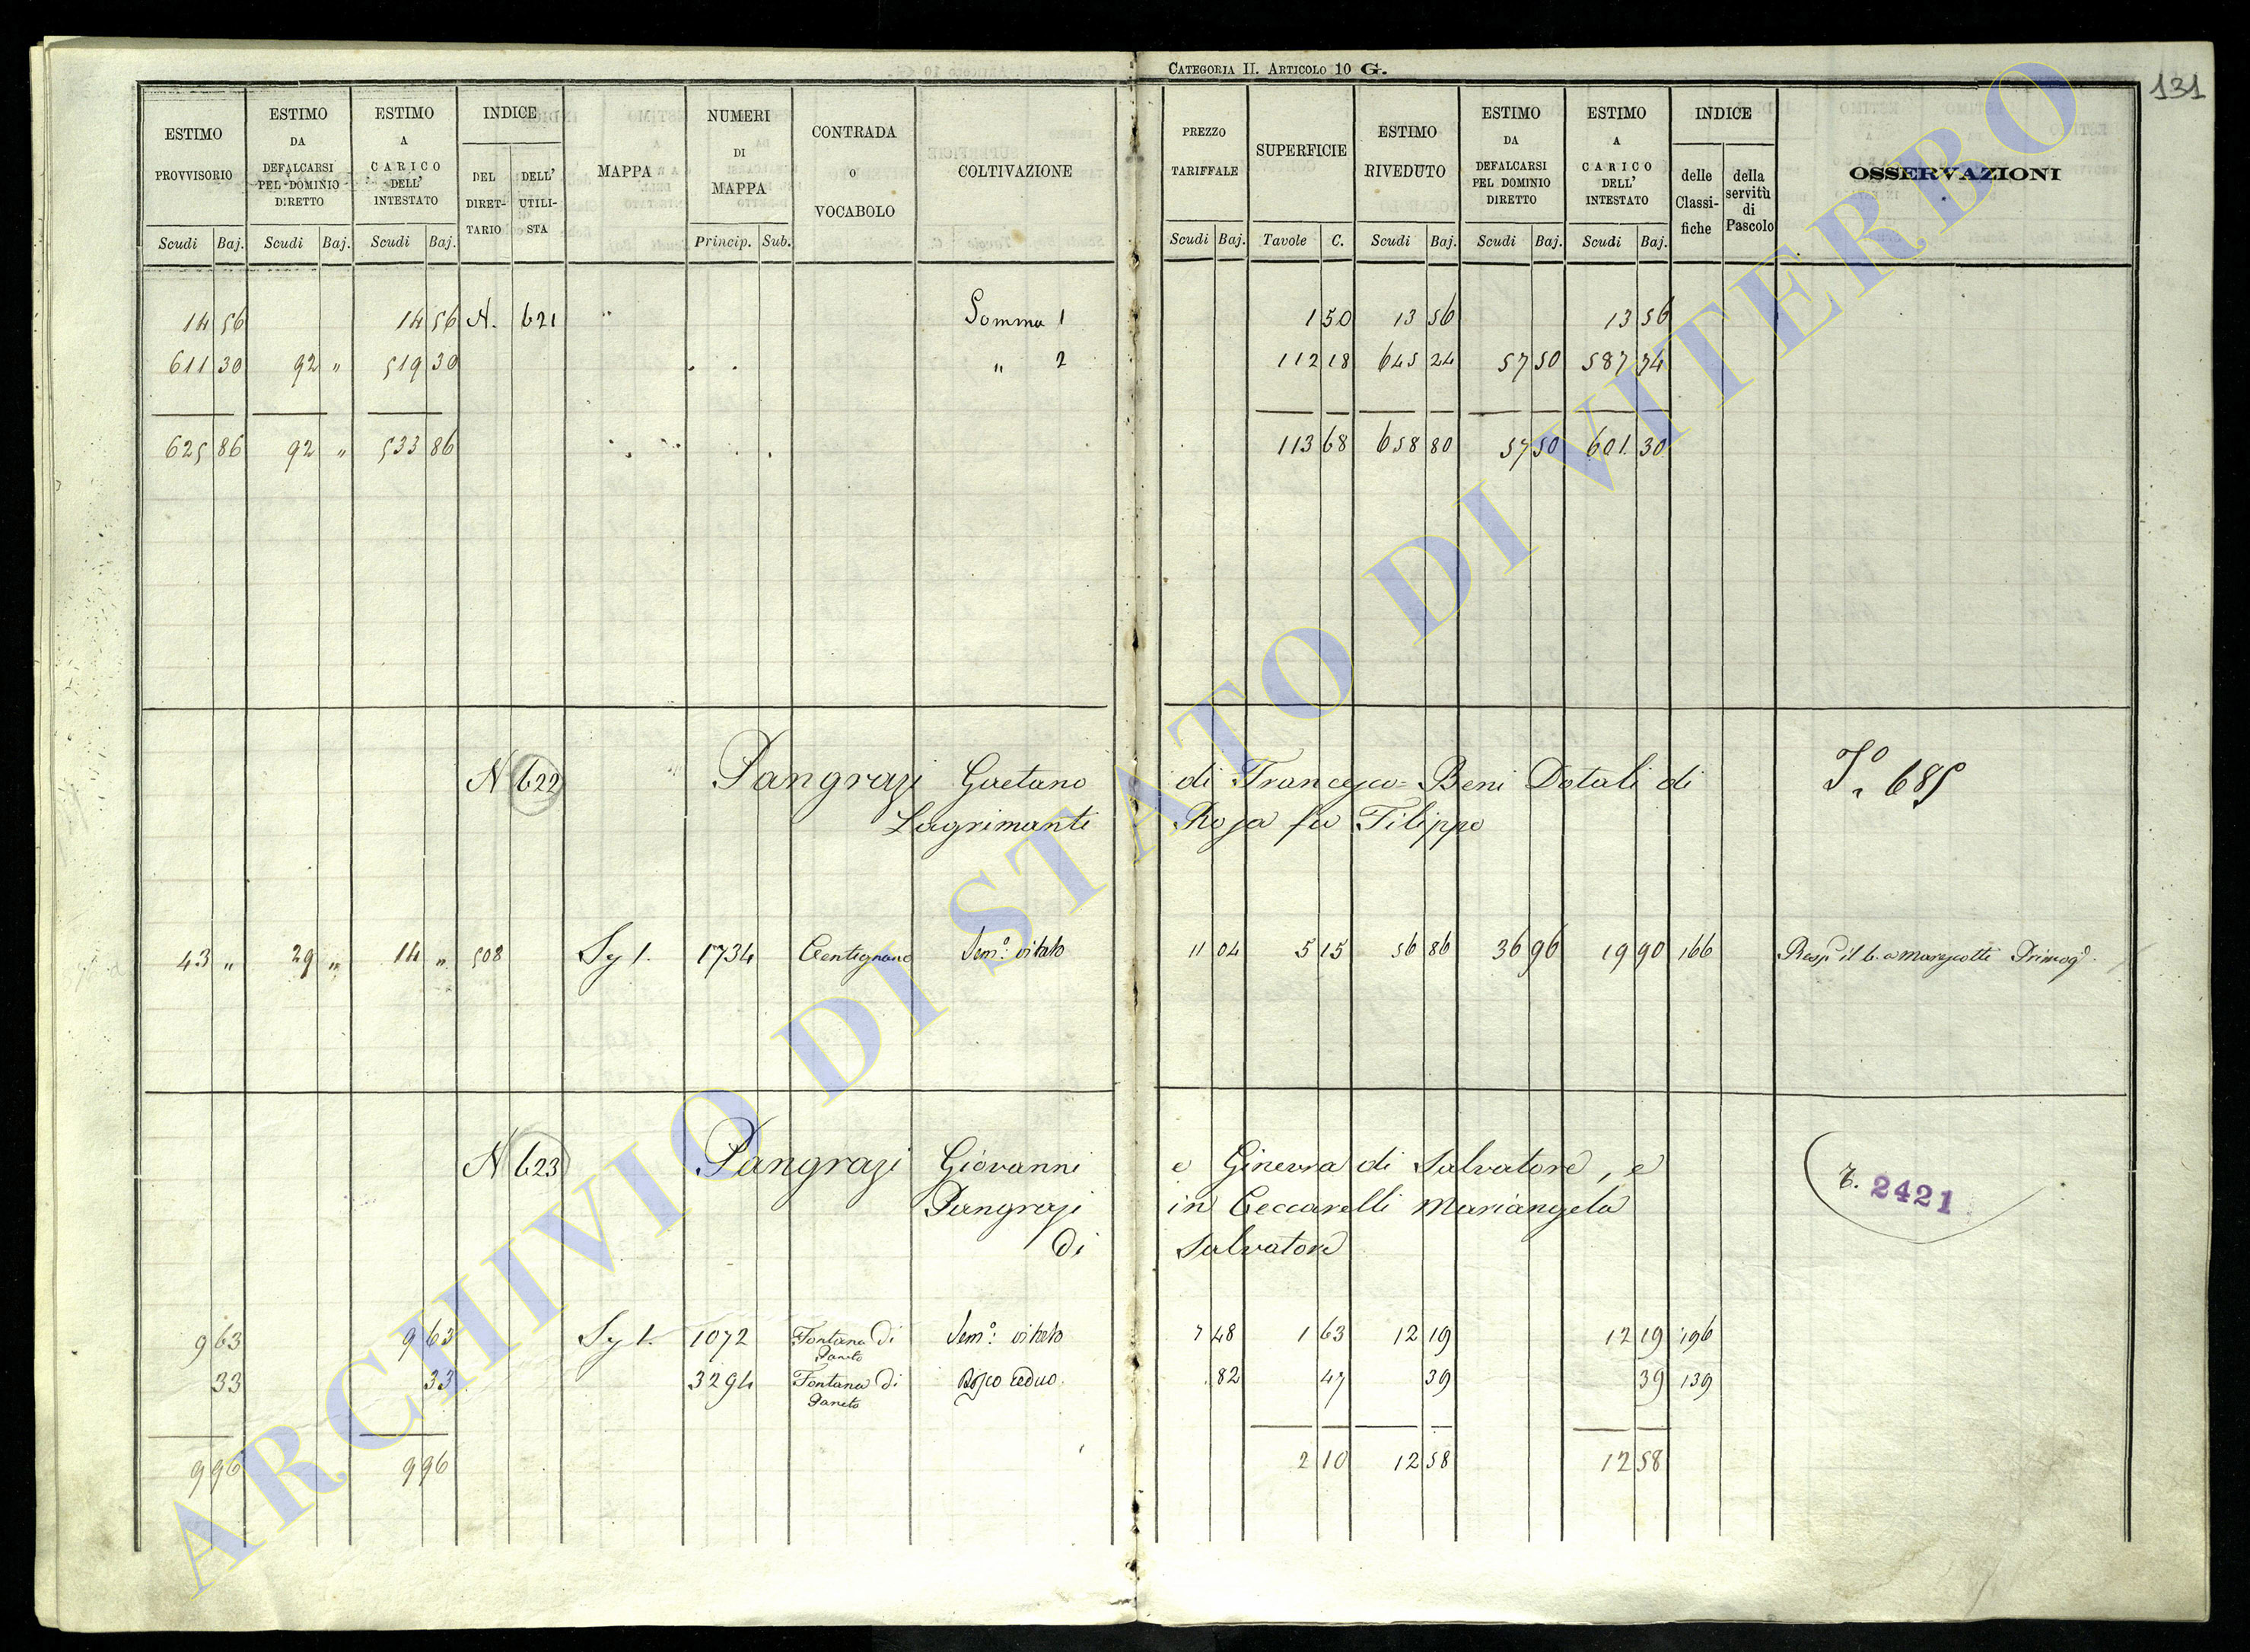 CATEGORIA II. ARTICOLO 10 G.
131
ESTIMO PROVVISORIO Scudi Baj.
ESTIMO DA DEFALCARSI PEL DOMINIO DIRETTO Scudi Baj.
ESTIMO A CARICO DELL' INTESTATO Scudi Baj.
INDICE DEL DIRET-TARIO DELL' UTILI-STA
MAPPA
NUMERI DI MAPPA Princip. Sub.
CONTRADA o VOCABOLO
COLTIVAZIONE
PREZZO TARIFFALE Scudi Baj.
SUPERFICIE Tavole C.
ESTIMO RIVEDUTO Scudi Baj.
ESTIMO DA DEFALCARSI PEL DOMINIO DIRETTO Scudi Baj.
ESTIMO A CARICO DELL' INTESTATO Scudi Baj.
INDICE delle Classi-fiche della servitù di Pascolo
OSSERVAZIONI
14 56 14 56 N. 621 Somma 1 1 50 13 56 13 56
611 30 92 " 519 30 " 2 112 18 645 24 57 50 587 74
625 86 92 " 533 86 113 68 658 80 57 50 601 30
N 622 Pangrazi Gaetano di Francesco = Beni Dotali di
Lagrimanti Rosa fu Filippo
685
43 " 29 " 14 " 508 Sez 1. 1734 Centignano Semo: vitato 11 04 5 15 56 86 36 96 19 90 166 Marescotti Primogo.
N 623 Pangrazi Giovanni e Ginevra di Salvatore, e
Pangrazi in Ceccarelli Mariangela
di Salvatore
2421
9 63 9 63 Sez 1. 1072 Fontana di Semo: vitato 7 48 1 63 12 19 12 19 196
33 33 3294 Fontana di Bosco ceduo 82 47 39 39 139
9 96 9 96 2 10 12 58 12 58
ARCHIVIO DI STATO DI VITERBO